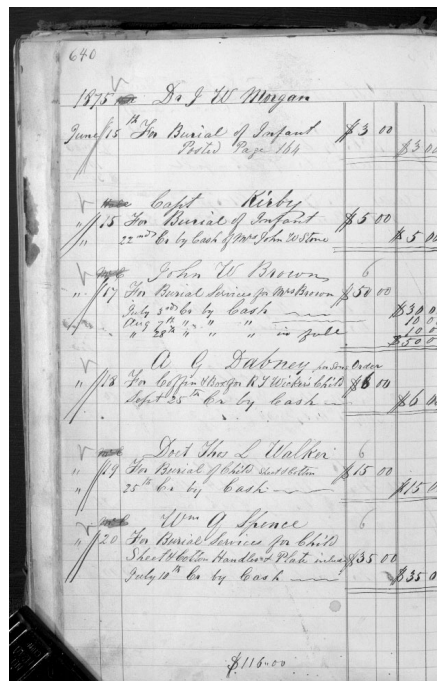 640
1875 Dr J W Morgan
June 15th For Burial of Infant $3 00
Posted Page 164 $3 00
Capt Kirby
" 15 For Burial of Infant $5 00
" 22nd Cr by Cash of Mrs John W Stone $5 00
John W Brown 6
" 17 For Burial Services for Mrs Brown $50 00
July 3rd Cr by Cash $30 0
Aug 7th " " " 10 0
" 28th " " " in full 10 0
$50 0
A G Dabney Order
" 18 For Coffin & Box for R T Wicker's Child $6 00
Sept 25th Cr by Cash $6 00
Doct Thos L Walker 6
" 19 For Burial of Child $15 00
25th Cr by Cash $15 0
Wm G Spence 6
" 20 For Burial Services for Child
Sheet & Cotton Handles & Plate $35 00
July 10th Cr by Cash $35 0
$116.00